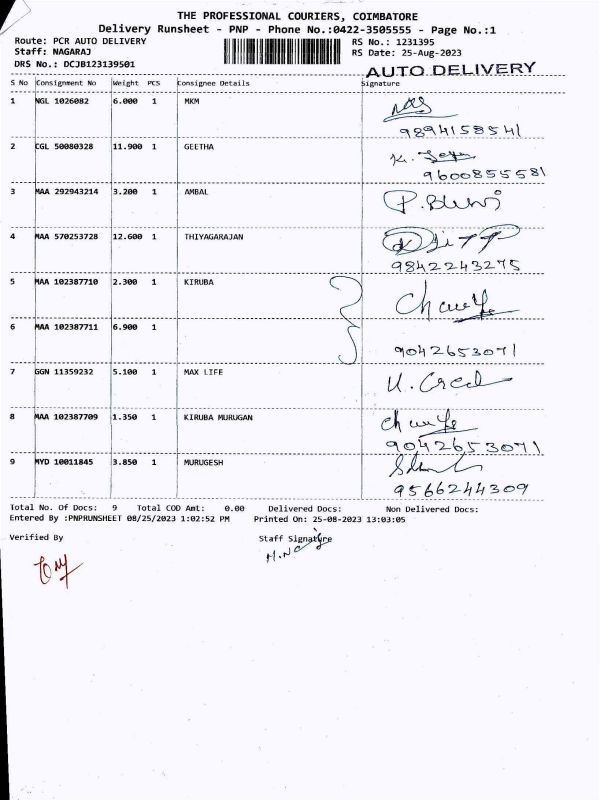 THE PROFESSIONAL COURIERS, COIMBATORE
Delivery Runsheet - PNP - Phone No.:0422-3505555 - Page No.:1
Route: PCR AUTO DELIVERY RS No.: 1231395
Staff: NAGARAJ RS Date: 25-Aug-2023
DRS No.: DCJB123139501
AUTO DELIVERY
S No Consignment No Weight PCS Consignee Details Signature
1 NGL 1026082 6.000 1 MKM
9894158541
2 CGL 50080328 11.900 1 GEETHA
9600855581
3 MAA 292943214 3.200 1 AMBAL
4 MAA 570253728 12.600 1 THIYAGARAJAN
9842243275
5 MAA 102387710 2.300 1 KIRUBA
6 MAA 102387711 6.900 1
9042653071
7 GGN 11359232 5.100 1 MAX LIFE
8 MAA 102387709 1.350 1 KIRUBA MURUGAN
9042653071
9 MYD 10011845 3.850 1 MURUGESH
9566244309
Total No. Of Docs: 9 Total COD Amt: 0.00 Delivered Docs: Non Delivered Docs:
Entered By :PNPRUNSHEET 08/25/2023 1:02:52 PM Printed On: 25-08-2023 13:03:05
Verified By Staff Signature